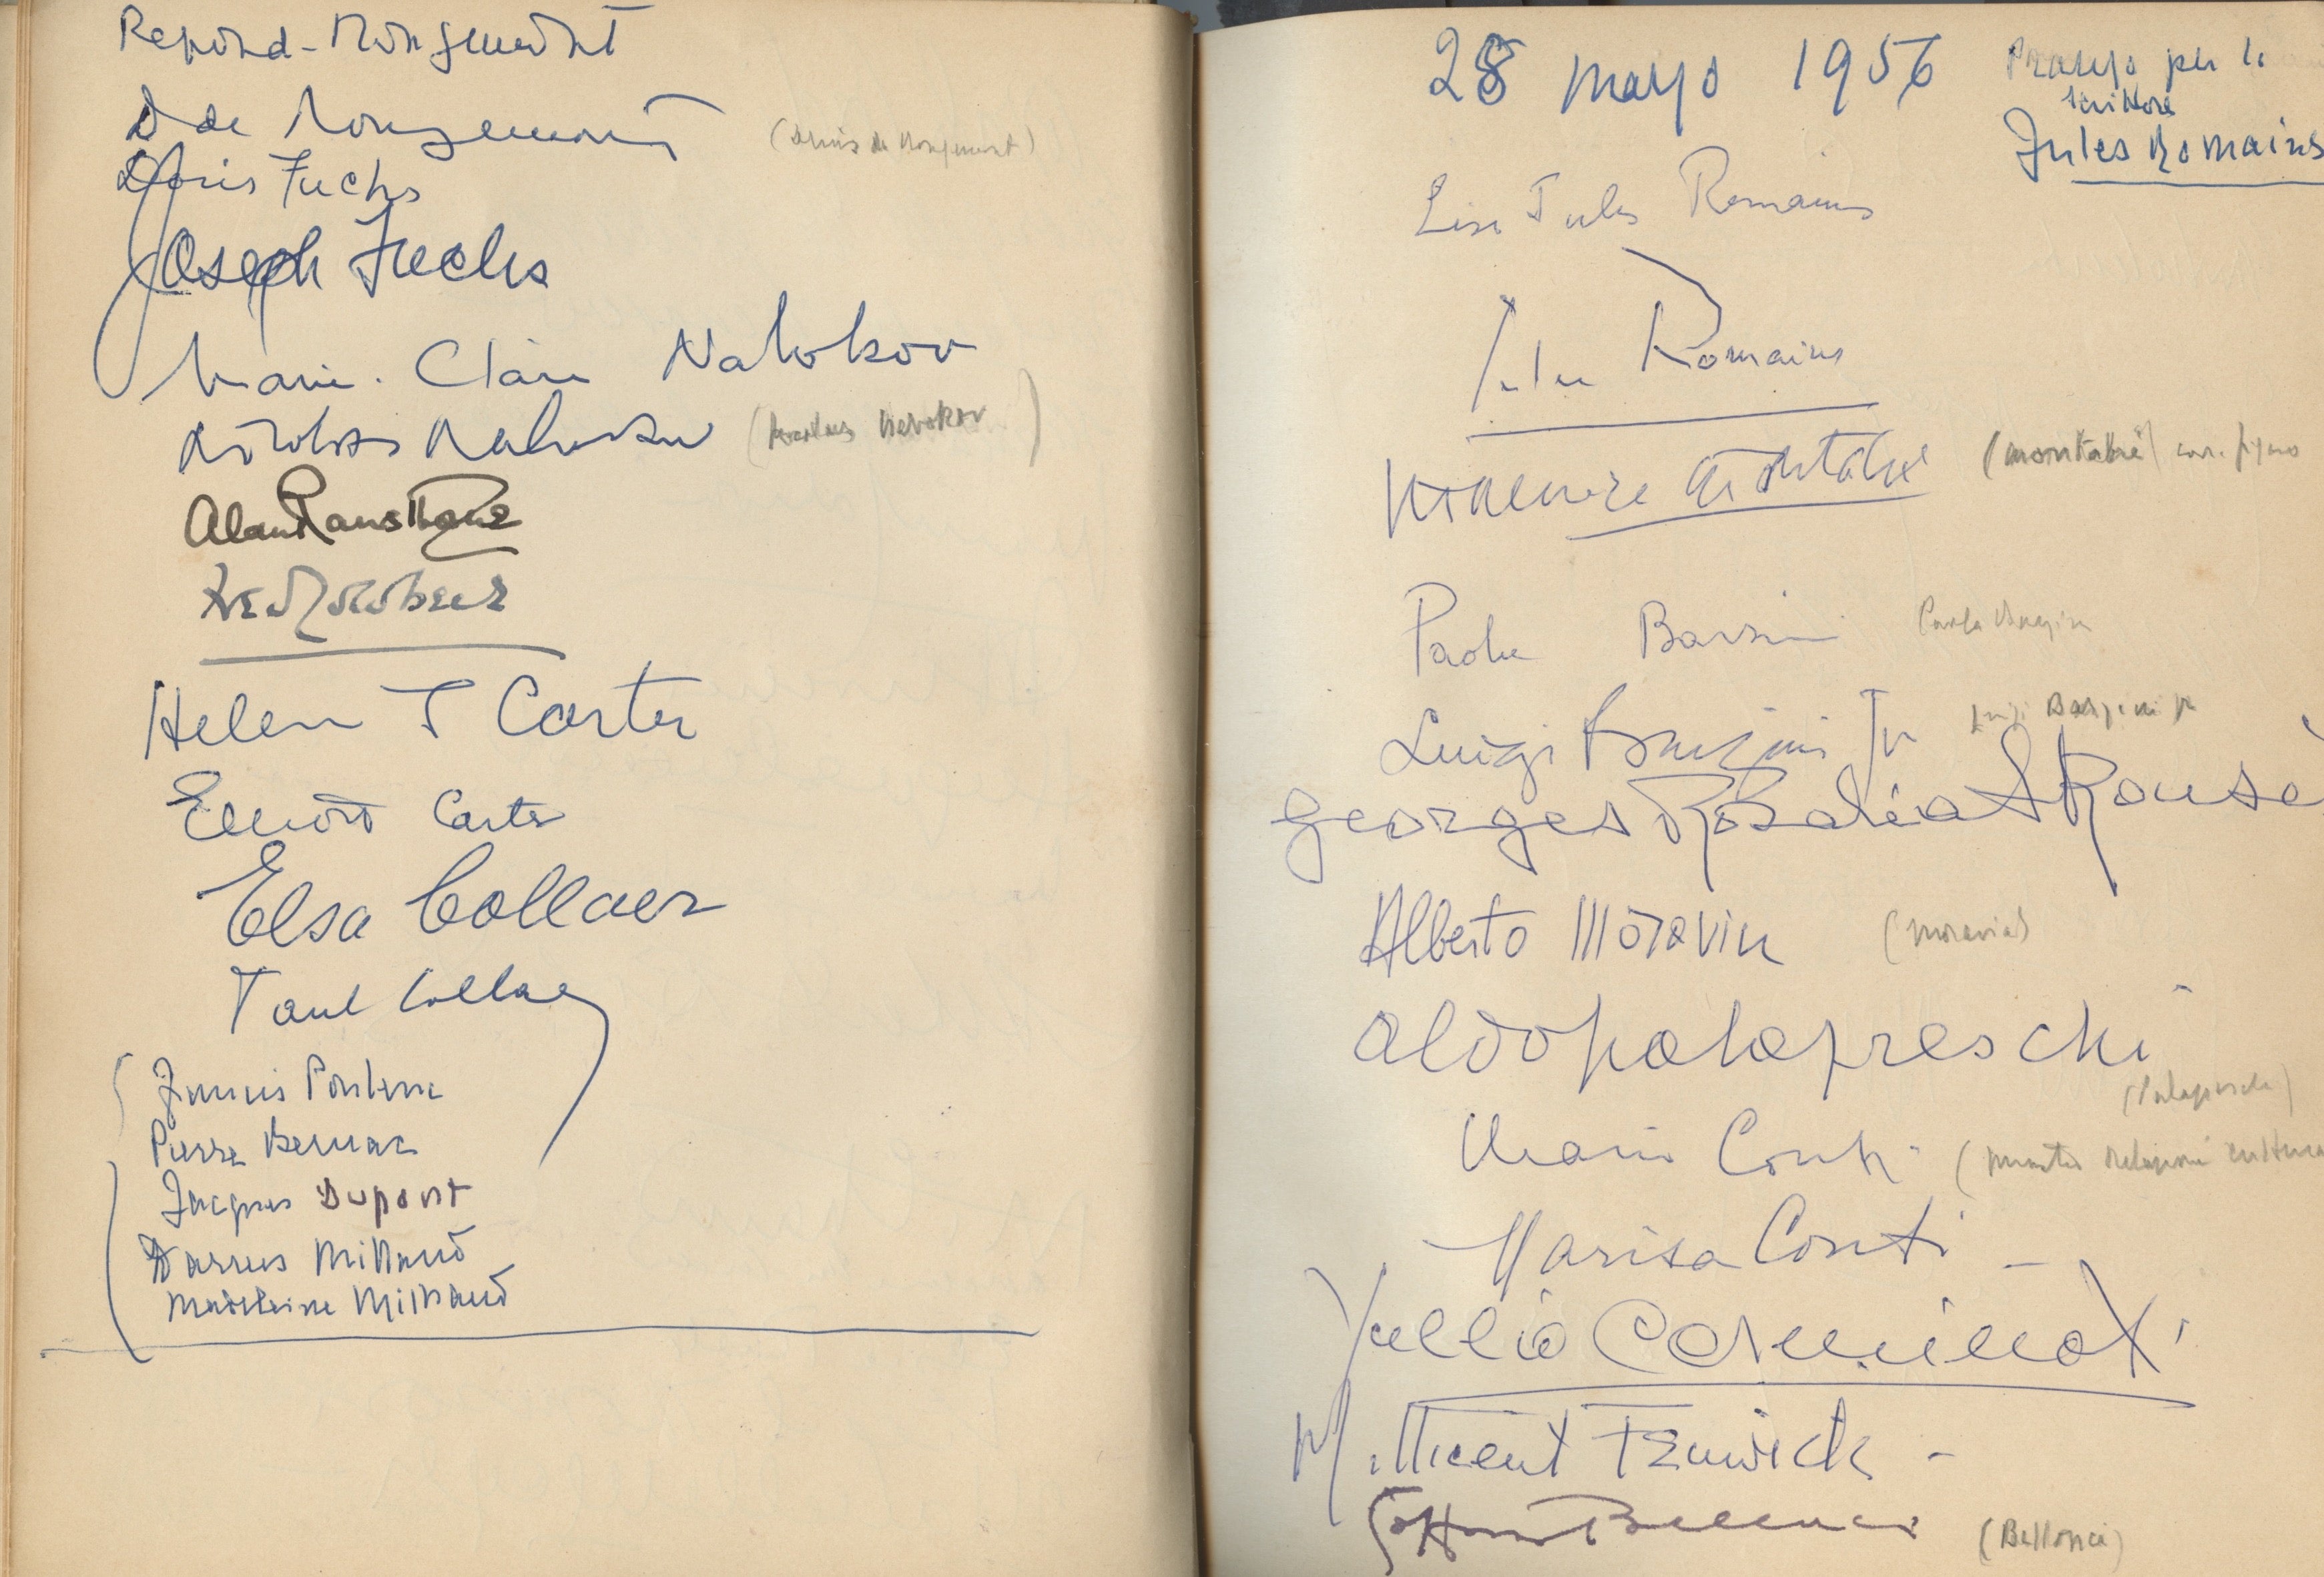 Repond-Rougemont
D de Rougemont (Denis de Rougemont)
Doris Fuchs
Joseph Fuchs
Marie-Claire Nabokov
Nicolas Nabokov (Nicolas Nabokov)
Alan Rawsthorne
Helen F Carter
Elliott Carter
Elsa Collaer
Paul Collaer
Francis Poulenc
Pierre Bernac
Jacques Dupont
Darius Milhaud
Madeleine Milhaud
28 mayo 1956
Pranzo per lo
scrittore
Jules Romains
Lise Jules Romains
Jules Romains
(Montabré)
Paola Barzini Paola Barzini
Luigi Barzini Jr Luigi Barzini Jr
Georges
Alberto Moravia (Moravia)
Aldo palazzeschi
(Palazzeschi)
Mario Conti
Marisa Conti
Millicent Fenwick -
Goffredo Bellonci (Bellonci)